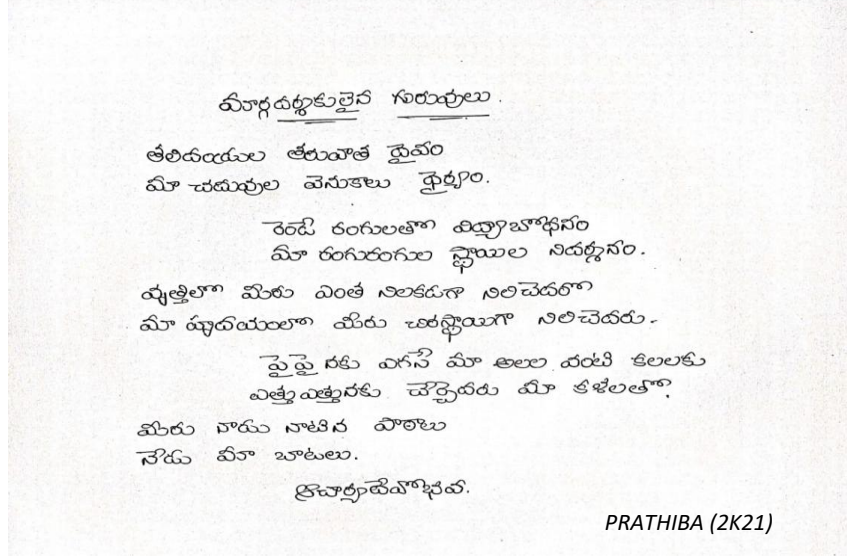 మార్గదర్శకులైన గురువులు.
తలిదండ్రుల తరువాత దైవం
మా చదువుల వెనుకాలు ధైర్యం.
రెండే రంగులతో విద్యాబోధనం
మా రంగురంగుల స్థాయిల నిదర్శనం.
వృత్తిలో మీరు ఎంత నిలకడగా నిలిచెదరో
మా హృదయంలో మీరు చిరస్థాయిగా నిలిచెదరు.
పై పై నకు ఎగసే మా అలల వంటి కలలకు
ఎత్తు ఎత్తునకు చేర్చెదరు మీ కళలతో.
మీరు నాడు నాటిన పాఠాలు
నేడు మా బాటలు.
ఆచార్యదేవోభవ.
PRATHIBA (2K21)